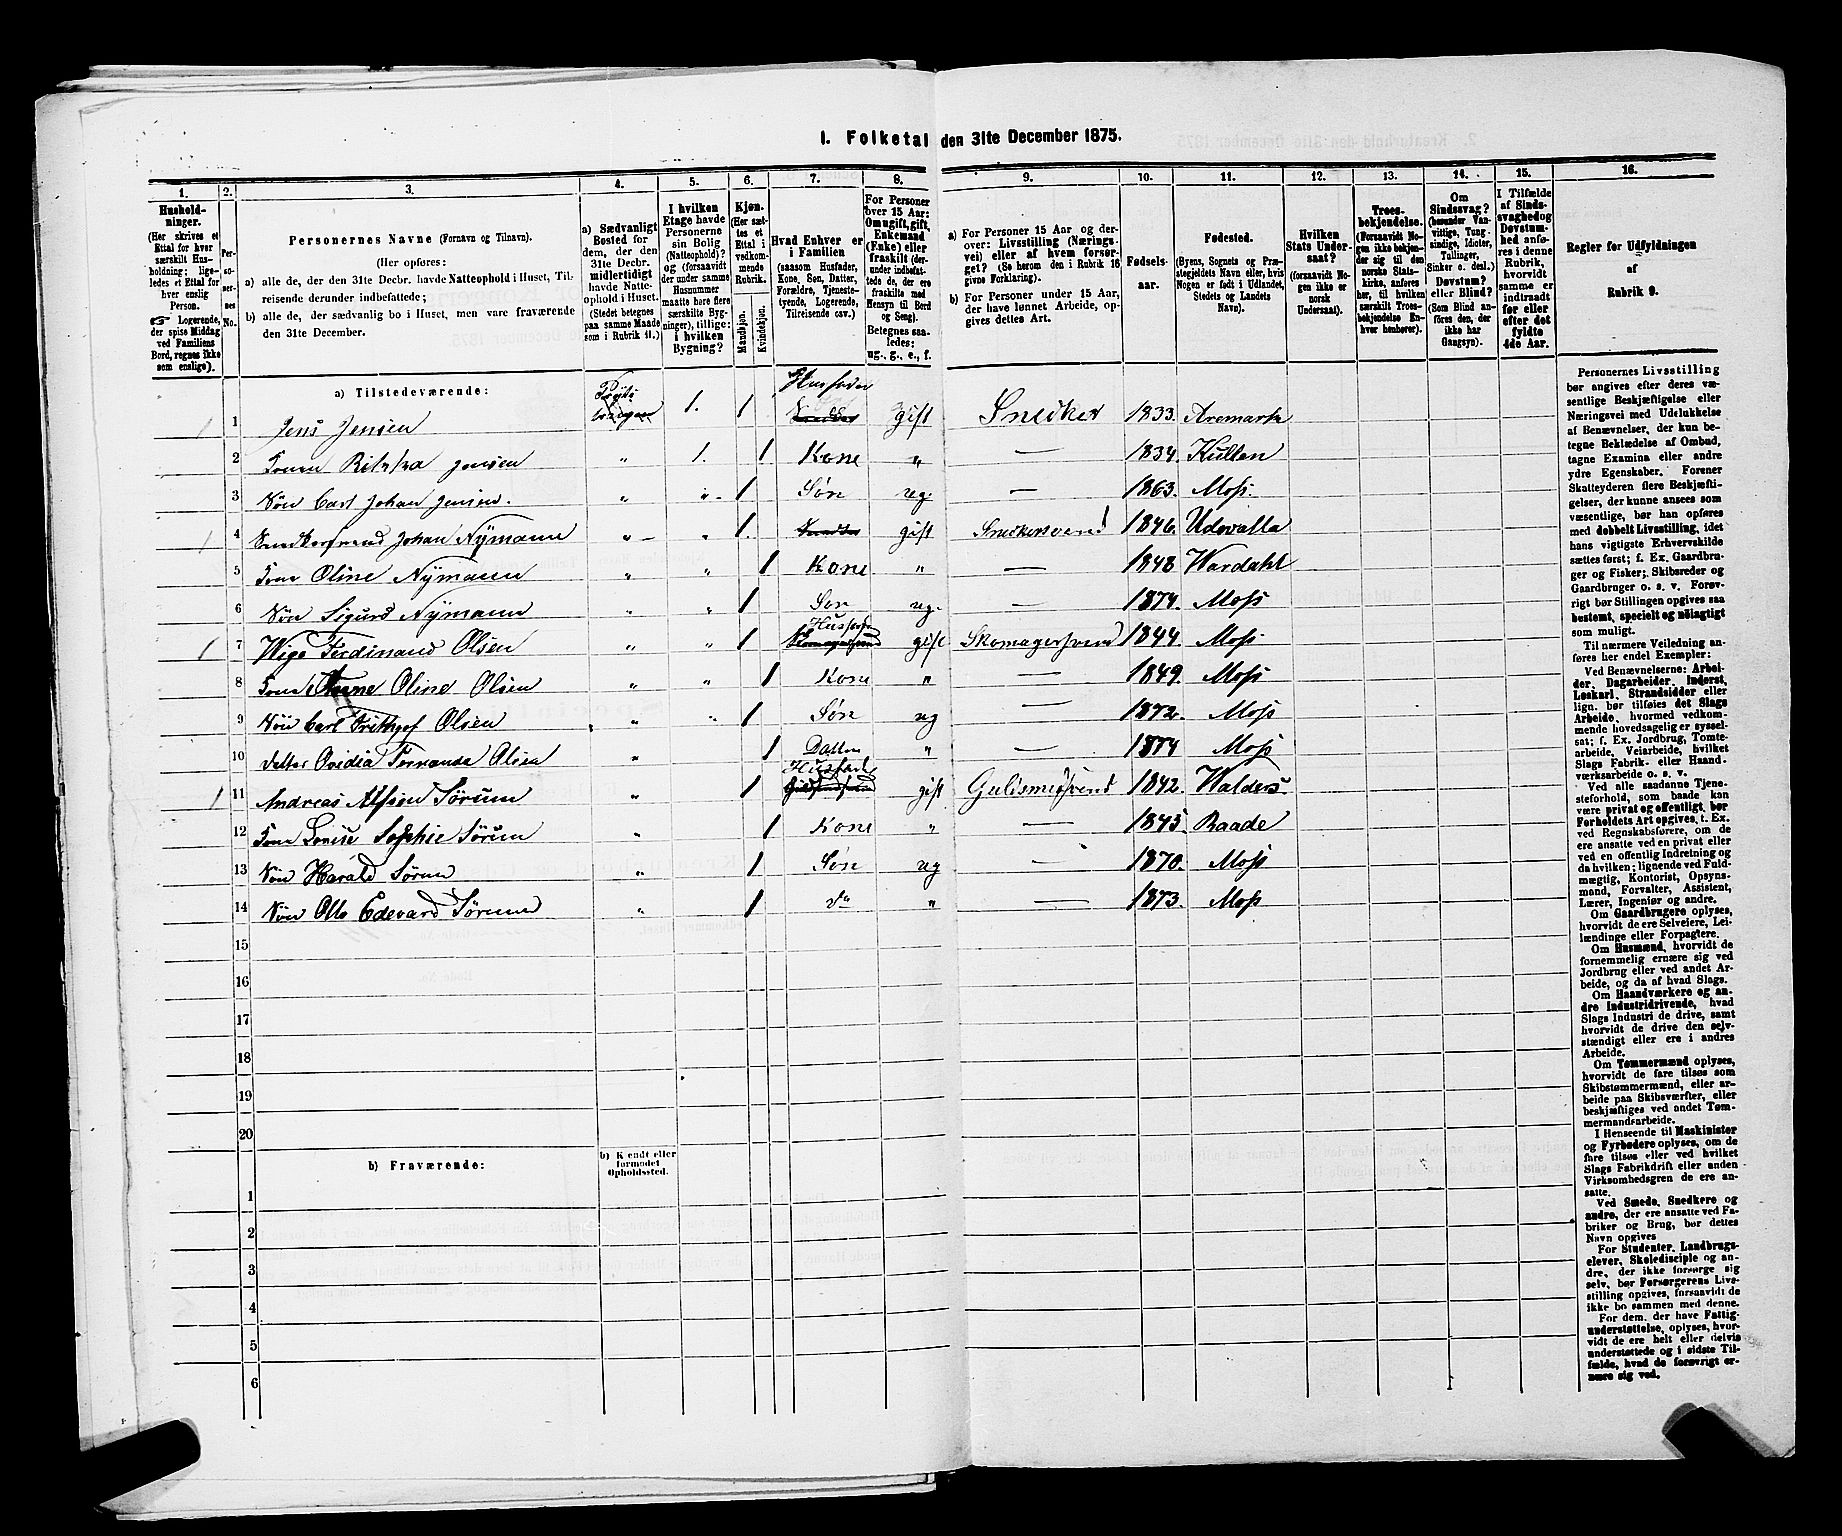 1. Folketal den 31te December 1875.
1. 2. 3. 4. 5. 6. 7. 8. 9. 10. 11. 12. 13. 14. 15. 16.
Husholdninger.
(Her skrives et
Ettal for hver
særskilt Husholdning;
ligeledes et Ettal
for hver enslig
Person.
☞ Logerende,
der spise Middag
ved Familiens
Bord, regnes ikke
som enslige).
Personernes No.
Personernes Navne (Fornavn og Tilnavn).
(Her opføres:
a) alle de, der den 31te Decbr. havde Natteophold i Huset, Tilreisende derunder indbefattede;
b) alle de, der sædvanlig bo i Huset, men vare fraværende
den 31te December.
a) Sædvanligt
Bosted for
dem, der den
31te Decbr.
midlertidigt
havde Natteophold
i Huset.
(Stedet betegnes
paa samme Maade
som i Rubrik 11.)
I hvilken
Etage havde
Personerne
sin Bolig
(Natteophold)?
og (forsaavidt
der under samme
Husnummer
maatte høre flere
særskilte Bygninger),
tillige:
i hvilken
Bygning?
Kjøn.
(Her sættes
et
Ettal i
vedkommende
Rubrik.
Mandkjøn.
Kvindekjøn.
Hvad Enhver er
i Familien
(saasom Husfader,
Kone, Søn, Datter,
Forældre, Tjenestetyende,
Logerende,
Tilreisende osv.)
For Personer
over 15 Aar:
Om ugift, gift,
Enkemand
(Enke) eller
fraskilt (derunder
indbefattede
de, der ere
fraskilte med
Hensyn til Bord
og Seng).
Betegnes saaledes:
ug., g., e., f.
a) For Personer 15 Aar og derover:
Livsstilling (Næringsvei)
eller af hvem forsørget?
(Se herom den i Rubrik 16
givne Forklaring).
b) For Personer under 15 Aar,
der have lønnet Arbeide, opgives
dettes Art.
Fødselsaar.
Fødested.
(Byens, Sognets og Præstegjeldets
Navn eller, hvis
Nogen er født i Udlandet,
Stedets og Landets
Navn).
Hvilken
Stats Undersaat?
(forsaavidt Nogen
ikke er
norsk
Undersaat).
Troesbekjendelse.
(Forsaavidt Nogen
ikke bekjender
sig til den
norske Statskirke,
anføres
her, til hvilken
særskilt Troesbekjendelse
Enhver
henhører).
Om
Sindssvag?
(herunder Vanvittige,
Tungsindige,
Idioter,
Tullinger,
Sinker o. desl.)
Døvstum?
eller Blind?
(Som Blind anføres
den, der
ikke har
Gangsyn).
I Tilfælde
af Sindssvaghed
og
Døvstumhed
anføres
i denne
Rubrik,
hvorvidt
samme er
indtraadt
før eller
efter det
fyldte
4de Aar.
Regler for Udfyldningen
af
Rubrik 9.
a) Tilstedeværende:
1 1 Jens Jensen 1. 1 Husfader gift Snedker 1833. Aremark
2 Jensen „ 1. 1 Kone „ — 1834. Kullen
3 Søn Carl Johan Jensen. „ „ 1 Søn ug. — 1863. Moss.
1 4 Johan Nÿmann „ „ 1. gift Snedkersvend 1846. Udevalla
5 Kone Oline Nÿmann „ „ 1 Kone „ — 1848 Wardahl
6 Søn Sigurd Nÿmann „ „ 1 Søn ug. — 1874. Moss.
1 7 Wige Ferdinand Olsen „ „ 1 Husfader gift Skomagersvend 1844. Moss.
8 Kone Anne Oline Olsen „ „ 1 Kone „ — 1849. Moss
9 Søn Carl Frithjof Olsen „ „ 1 Søn ug — 1872. Moss
10 Datter Ovidia Fernanda Olsen „ 1 Datter „ — 1874 Moss
1 11 Andreas Sørum „ 1 Husfader gift Guldsmedsvend 1842. Walders
12 Kone Lovise Sophie Sørum „ 1 Kone „ — 1845 Raade
13 Søn Harald Sørum „ 1 Søn ug — 1870. Moss
14 Søn Otto Edevard Sørum „ 1 do „ — 1873. Moss
15
16
17
18
19
20
b) Fraværende:
b) Kjendt eller
formodet
Opholdssted.
1
2
3
4
5
6
Personernes Livsstilling
bør angives efter deres væsentlige
Beskjæftigelse eller
Næringsvei med Udelukkelse
af Benævnelser, der kun betegne
Beklædelse af Ombud,
tagne Examina eller andre
ydre Egenskaber. Forener
Skatteyderen flere Beskjæftigelser,
der kunne ansees som
væsentlige, bør han opføres
med dobbelt Livsstilling, idet
hans vigtigste Erhvervskilde
sættes først; f. Ex. Gaardbruger
og Fisker; Skibsreder og
Gaardbruger o. s. v. Forøvrigt
bør Stillingen opgives saa
bestemt, specielt og nøiagtigt
som muligt.
Til nærmere Veiledning anføres
her endel Exempler:
Ved Benævnelserne: Arbeider,
Dagarbeider, Inderst,
Løskarl, Strandsidder eller
lign. bør tilføies det Slags
Arbeide, hvormed vedkommende
hovedsagelig er sysselsat;
f. Ex. Jordbrug, Tomtearbeide,
Veiarbeide, hvilket
Slags Fabrik- eller Haandværksarbeide
o. s. v.
Ved alle saadanne Tjenesteforhold,
som baade kan
være privat og offentligt, bør
Forholdets Art opgives, t. Ex.
ved Regnskabsførere, om de
ere ansatte ved en privat eller
ved en offentlig Indretning og
da hvilken; lignende ved Fuldmægtig,
Kontorist, Opsynsmand,
Forvalter, Assistent,
Lærer, Ingeniør og andre.
Om Gaardbrugere oplyses,
hvorvidt de ere Selveiere, Leilændinge
eller Forpagtere.
Om Husmænd, hvorvidt de
fornemmelig ernære sig ved
Jordbrug eller ved andet Arbeide,
og da af hvad Slags.
Om Haandværkere og andre
Industridrivende, hvad
Slags Industri de drive, samt
hvorvidt de drive den selvstændigt
eller ere i andres
Arbeide.
Om Tømmermænd oplyses,
hvorvidt de fare tilsøs som
Skibstømmermænd, eller arbeide
paa Skibsværfter, eller
beskjæftiges ved andet Tømmermandsarbeide.
I Henseende til Maskinister
og Fyrbødere oplyses, om de
fare tilsøs eller ved hvilket
Slags Fabrikdrift eller anden
Virksomhedsgren de ere ansatte.
Ved Smede, Snedkere og
andre, der ere ansatte ved Fabriker
og Brug, bør dettes
Navn opgives
For Studenter, Landbrugselever,
Skoledisciple og andre,
der ikke forsørge sig
selv, bør Forsørgerens Livsstilling
opgives, forsaavidt de
ikke bo sammen med denne.
For dem, der have Fattigunderstøttelse,
oplyses, hvorvidt
de ere helt eller delvis
understøttede og i sidste Tilfælde,
hvad de forøvrigt ernære
sig ved.